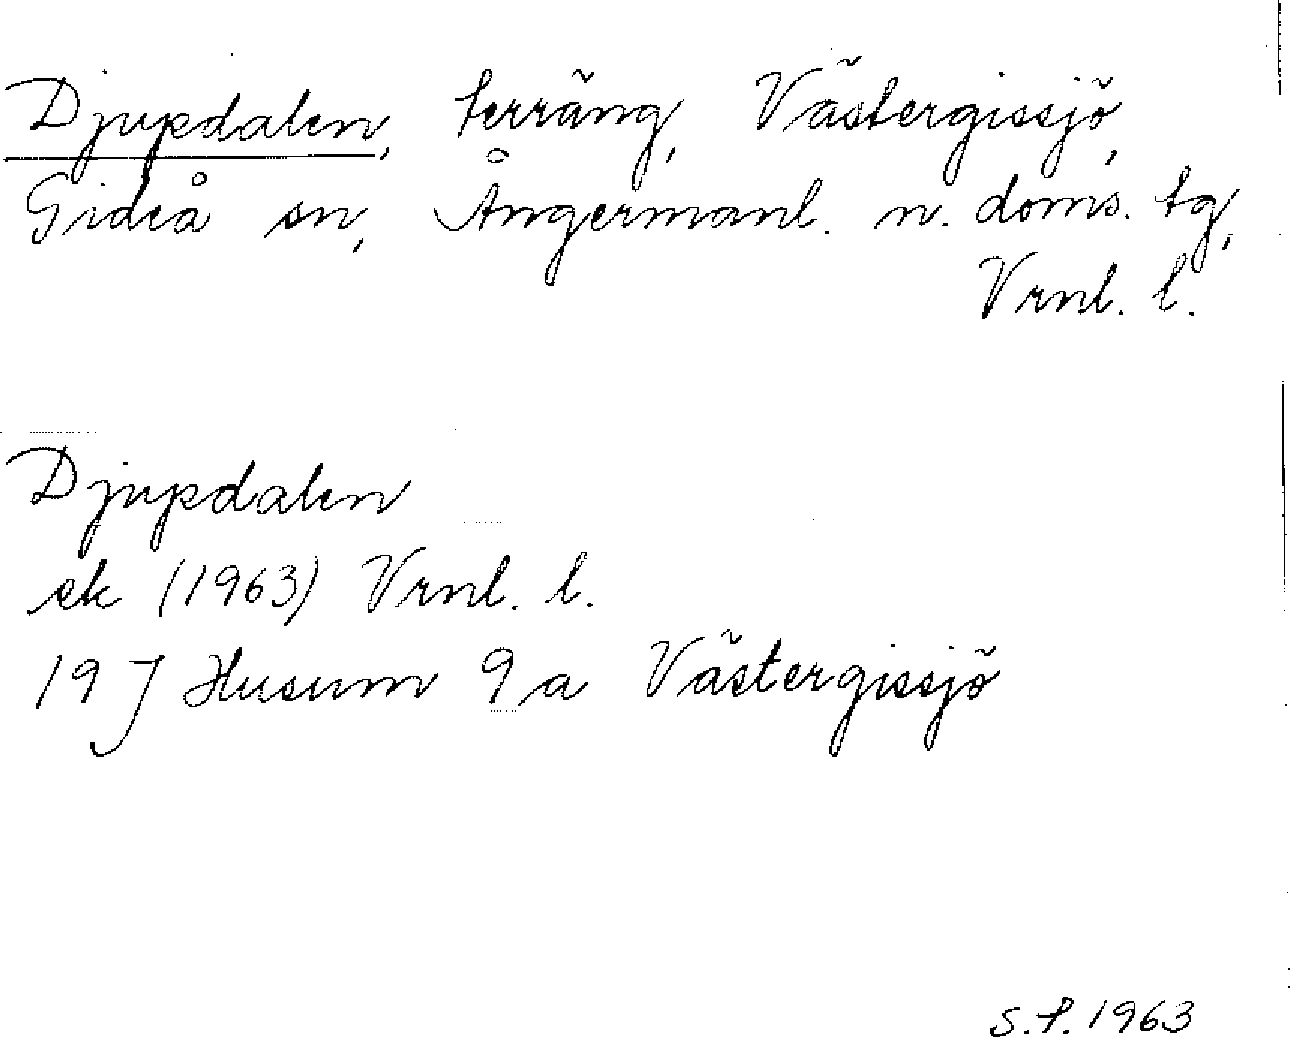 Djupdalen, terräng, Västergissjö,
Gideå sn, Ångermanl. n. doms. tg,
Vrnl. l.
Djupdalen
ek (1963) Vrnl. l.
19 J Husum 9 a Västergissjö
S.P. 1963